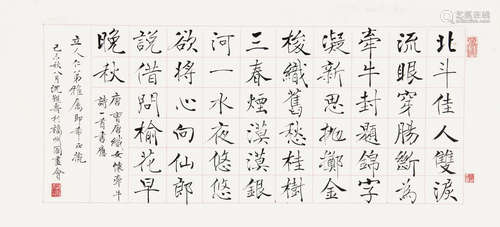 北斗佳人雙淚
流眼穿腸斷為
牽牛封題錦字
凝新思拋擲金
梭織舊愁桂樹
三春煙漠漠銀
河一水夜悠悠
欲將心向仙郎
說借問榆花早
晚秋
唐曹唐織女懷牽牛
詩一首書應
立人仁弟雅屬即希正腕
己未秋八月沈覲壽於福州國畫會